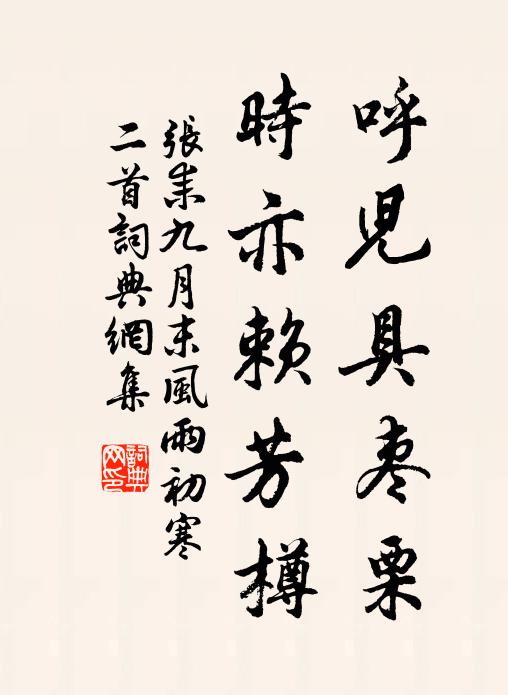 呼児具枣栗
時亦賴芳樽
張耒九月末風雨初寒
二首詞典網集
詞典网印